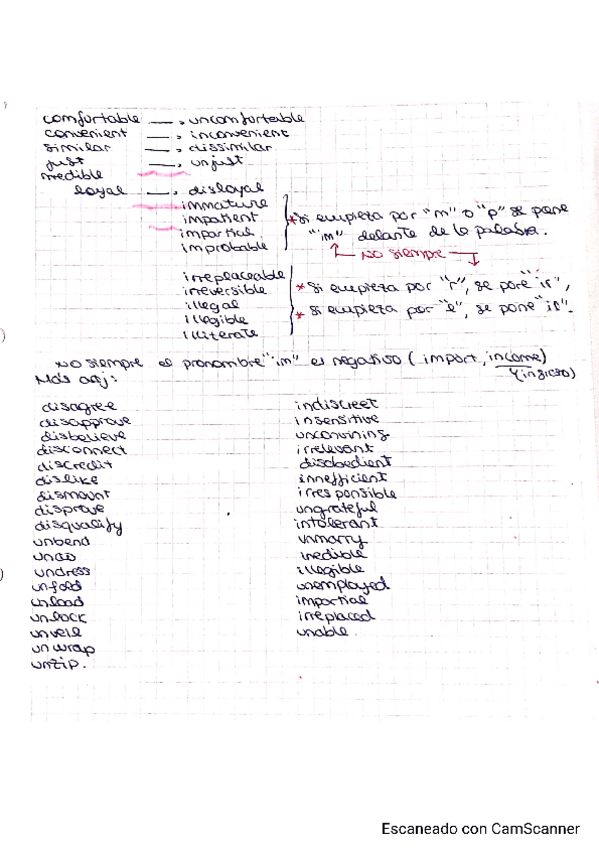 comfortable → uncomfortable
convenient → inconvenient
similar → dissimilar
just → unjust
medible
loyal → disloyal
immature
impatient
impartial
improbable
*si empieza por "m" o "p" se pone
"im" delante de la palabra.
no siempre
irreplaceable
irreversible
illegal
illegible
illiterate
* si empieza por "r", se pone "ir",
* si empieza por "l", se pone "il".
No siempre el pronombre "im" es negativo (import, income)
(ingreso)
Más adj:
disagree
disapprove
disbelieve
disconnect
discredit
dislike
dismount
disprove
disqualify
unbend
undo
undress
unfold
unload
unlock
unveil
unwrap
unzip.
indiscreet
insensitive
unconvining
irrelevant
disobedient
innefficient
irresponsible
ungrateful
intolerant
unmarry
inedible
illegible
unemployed
impartial
irreplaced
unable.
Escaneado con CamScanner